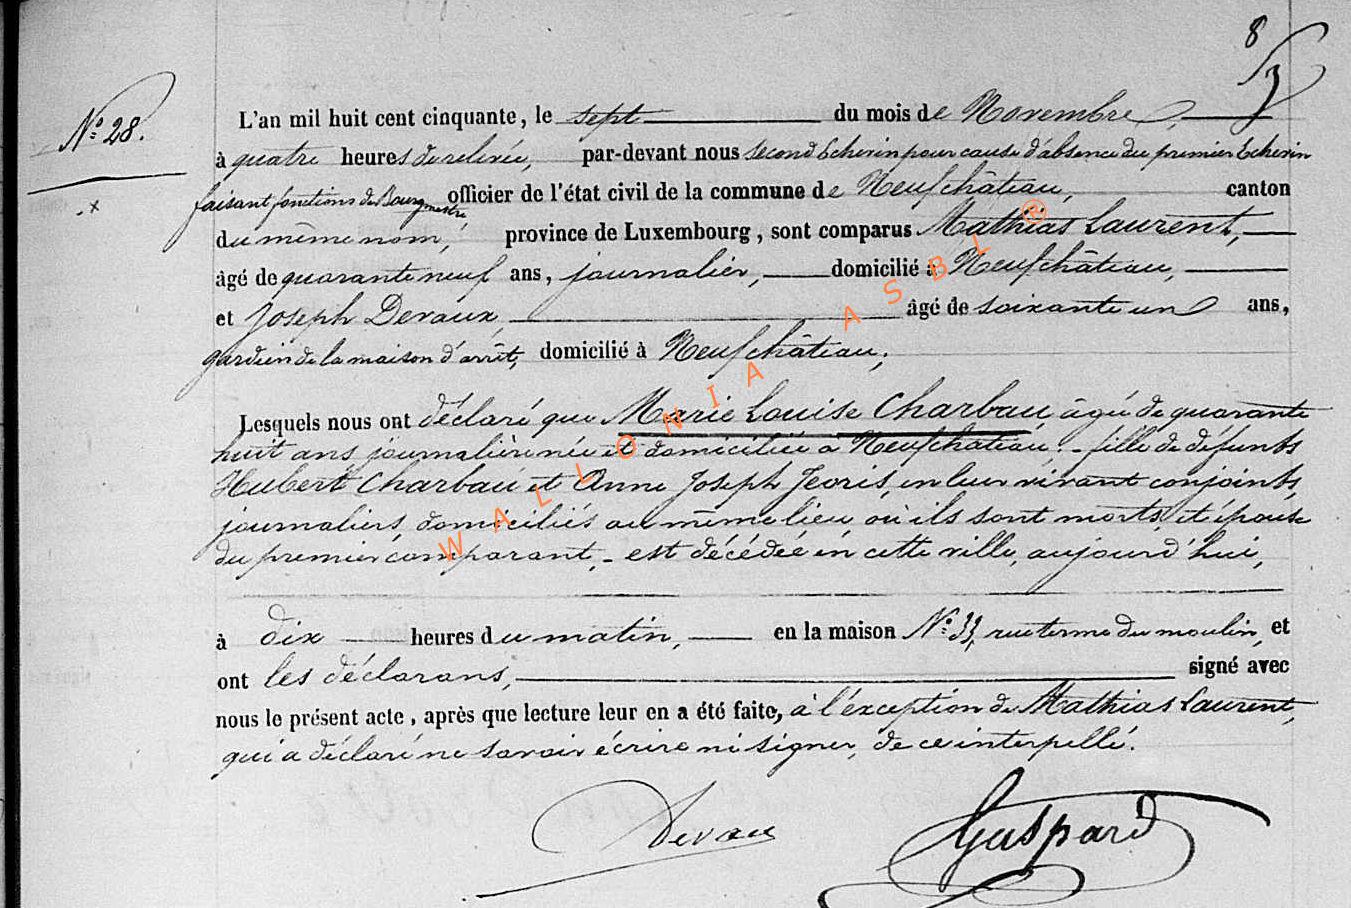 8
N° 28.
L'an mil huit cent cinquante, le sept du mois de Novembre,
à quatre heures de relevée, par-devant nous second Echevin pour cause d'absence du premier Echevin
faisant fonctions de Bourgmestre officier de l'état civil de la commune de Neufchâteau, canton
du même nom, province de Luxembourg, sont comparus Mathias Laurent,
âgé de quarante neuf ans, journalier, domicilié à Neufchâteau,
et Joseph Devaux, âgé de soixante un ans,
gardien de la maison d'arrêt, domicilié à Neufchâteau,
Lesquels nous ont déclaré que Marie Louise Charbau âgée de quarante
huit ans journalière née et domiciliée à Neufchâteau, - fille de défunts
Hubert Charbau et Anne Joseph Jeoris, en leur vivant conjoints,
journaliers, domiciliés au même lieu, où ils sont morts, et épouse
du premier comparant, - est décédée en cette ville, aujourd'hui,
à dix heures du matin, en la maison N° 33, rue terme du moulin, et
ont les déclarans, signé avec
nous le présent acte, après que lecture leur en a été faite, à l'éxception de Mathias Laurent,
qui a déclaré ne savoir écrire ni signer, de ce interpellé.
Devau Gaspard
WALLONIA ASBL ®